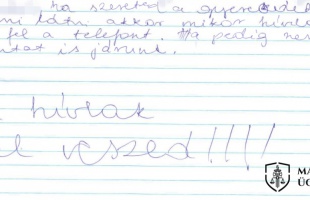 ha szereted a gyereeidet
ni látni akkor mikor hívlak
fel a telefont. Ha pedig nem
utat is járunk
hívlak
l veszed!!!!
MA
ÜG